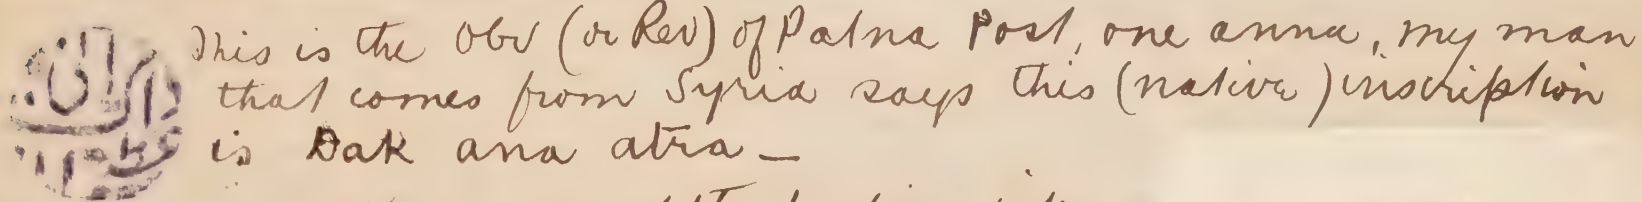 This is the Obv (or Rev) of Patna Post, one anna, my man
that comes from Syria says this (native) inscription
is Dak ana atra —